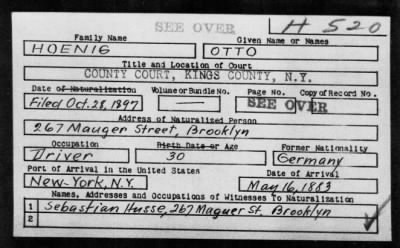 SEE OVER H 520
Family Name Given Name or Names
HOENIG OTTO
Title and Location of Court
COUNTY COURT, KINGS COUNTY, N.Y.
Date of Naturalization Volume or Bundle No. Page No. Copy of Record No.
Filed Oct. 28, 1897 — SEE OVER
Address of Naturalized Person
267 Mauger Street, Brooklyn
Occupation Birth Date or Age Former Nationality
Driver 30 Germany
Port of Arrival in the United States Date of Arrival
New-York, N.Y. May 16, 1883
Names, Addresses and Occupations of Witnesses To Naturalization
1 Sebastian Husse, 267 Maguer St. Brooklyn
2